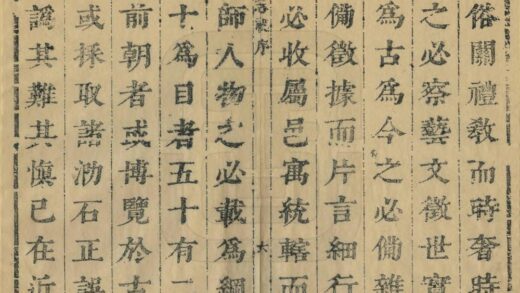 俗關禮敎而時奢時
之必察藝文徵世實
為古為今之必備雜
備徵據而片言細行
必收屬邑寓統轄而
序
六
師人物之必載為綱
十為目者五十有二
前朝者或博覽於古
或採取諸泐石正誤
謂其難其慎已在近